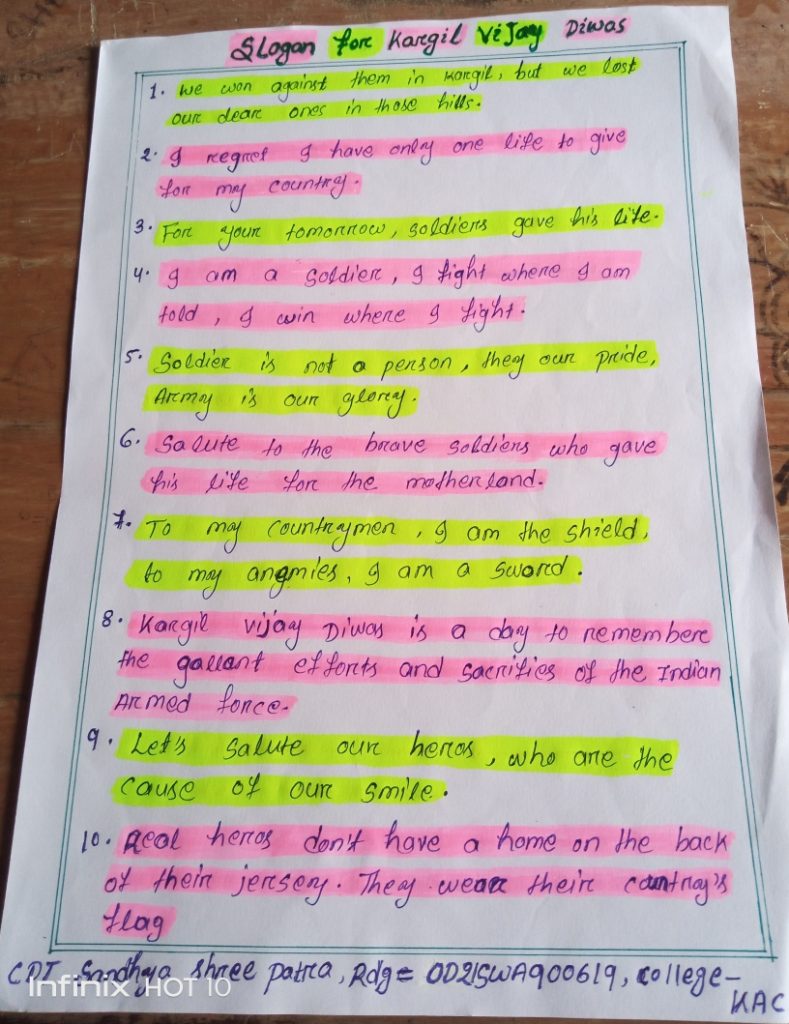 Slogan for Kargil Vijay Diwas
1. We won against them in Kargil, but we lost
our dear ones in those hills.
2. I regret I have only one life to give
for my country.
3. For your tomorrow, soldiers gave his life.
4. I am a Soldier, I fight where I am
told, I win where I fight.
5. Soldier is not a person, they our pride,
Army is our glory.
6. Salute to the brave soldiers who gave
his life for the motherland.
7. To my countrymen, I am the shield,
to my angmies, I am a sword.
8. Kargil Vijay Diwas is a day to remembere
the gallant efforts and sacrifies of the Indian
Armed force.
9. Let's salute our heros, who are the
cause of our smile.
10. Real heros don't have a home on the back
of their jersery. They wear their country's
flag
CDT Sandhya Shree Patra, Rdg= OD21SWA900619, college-
KAC
Infinix HOT 10